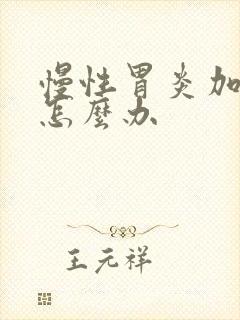 慢性胃炎加
怎麼办
王元祥